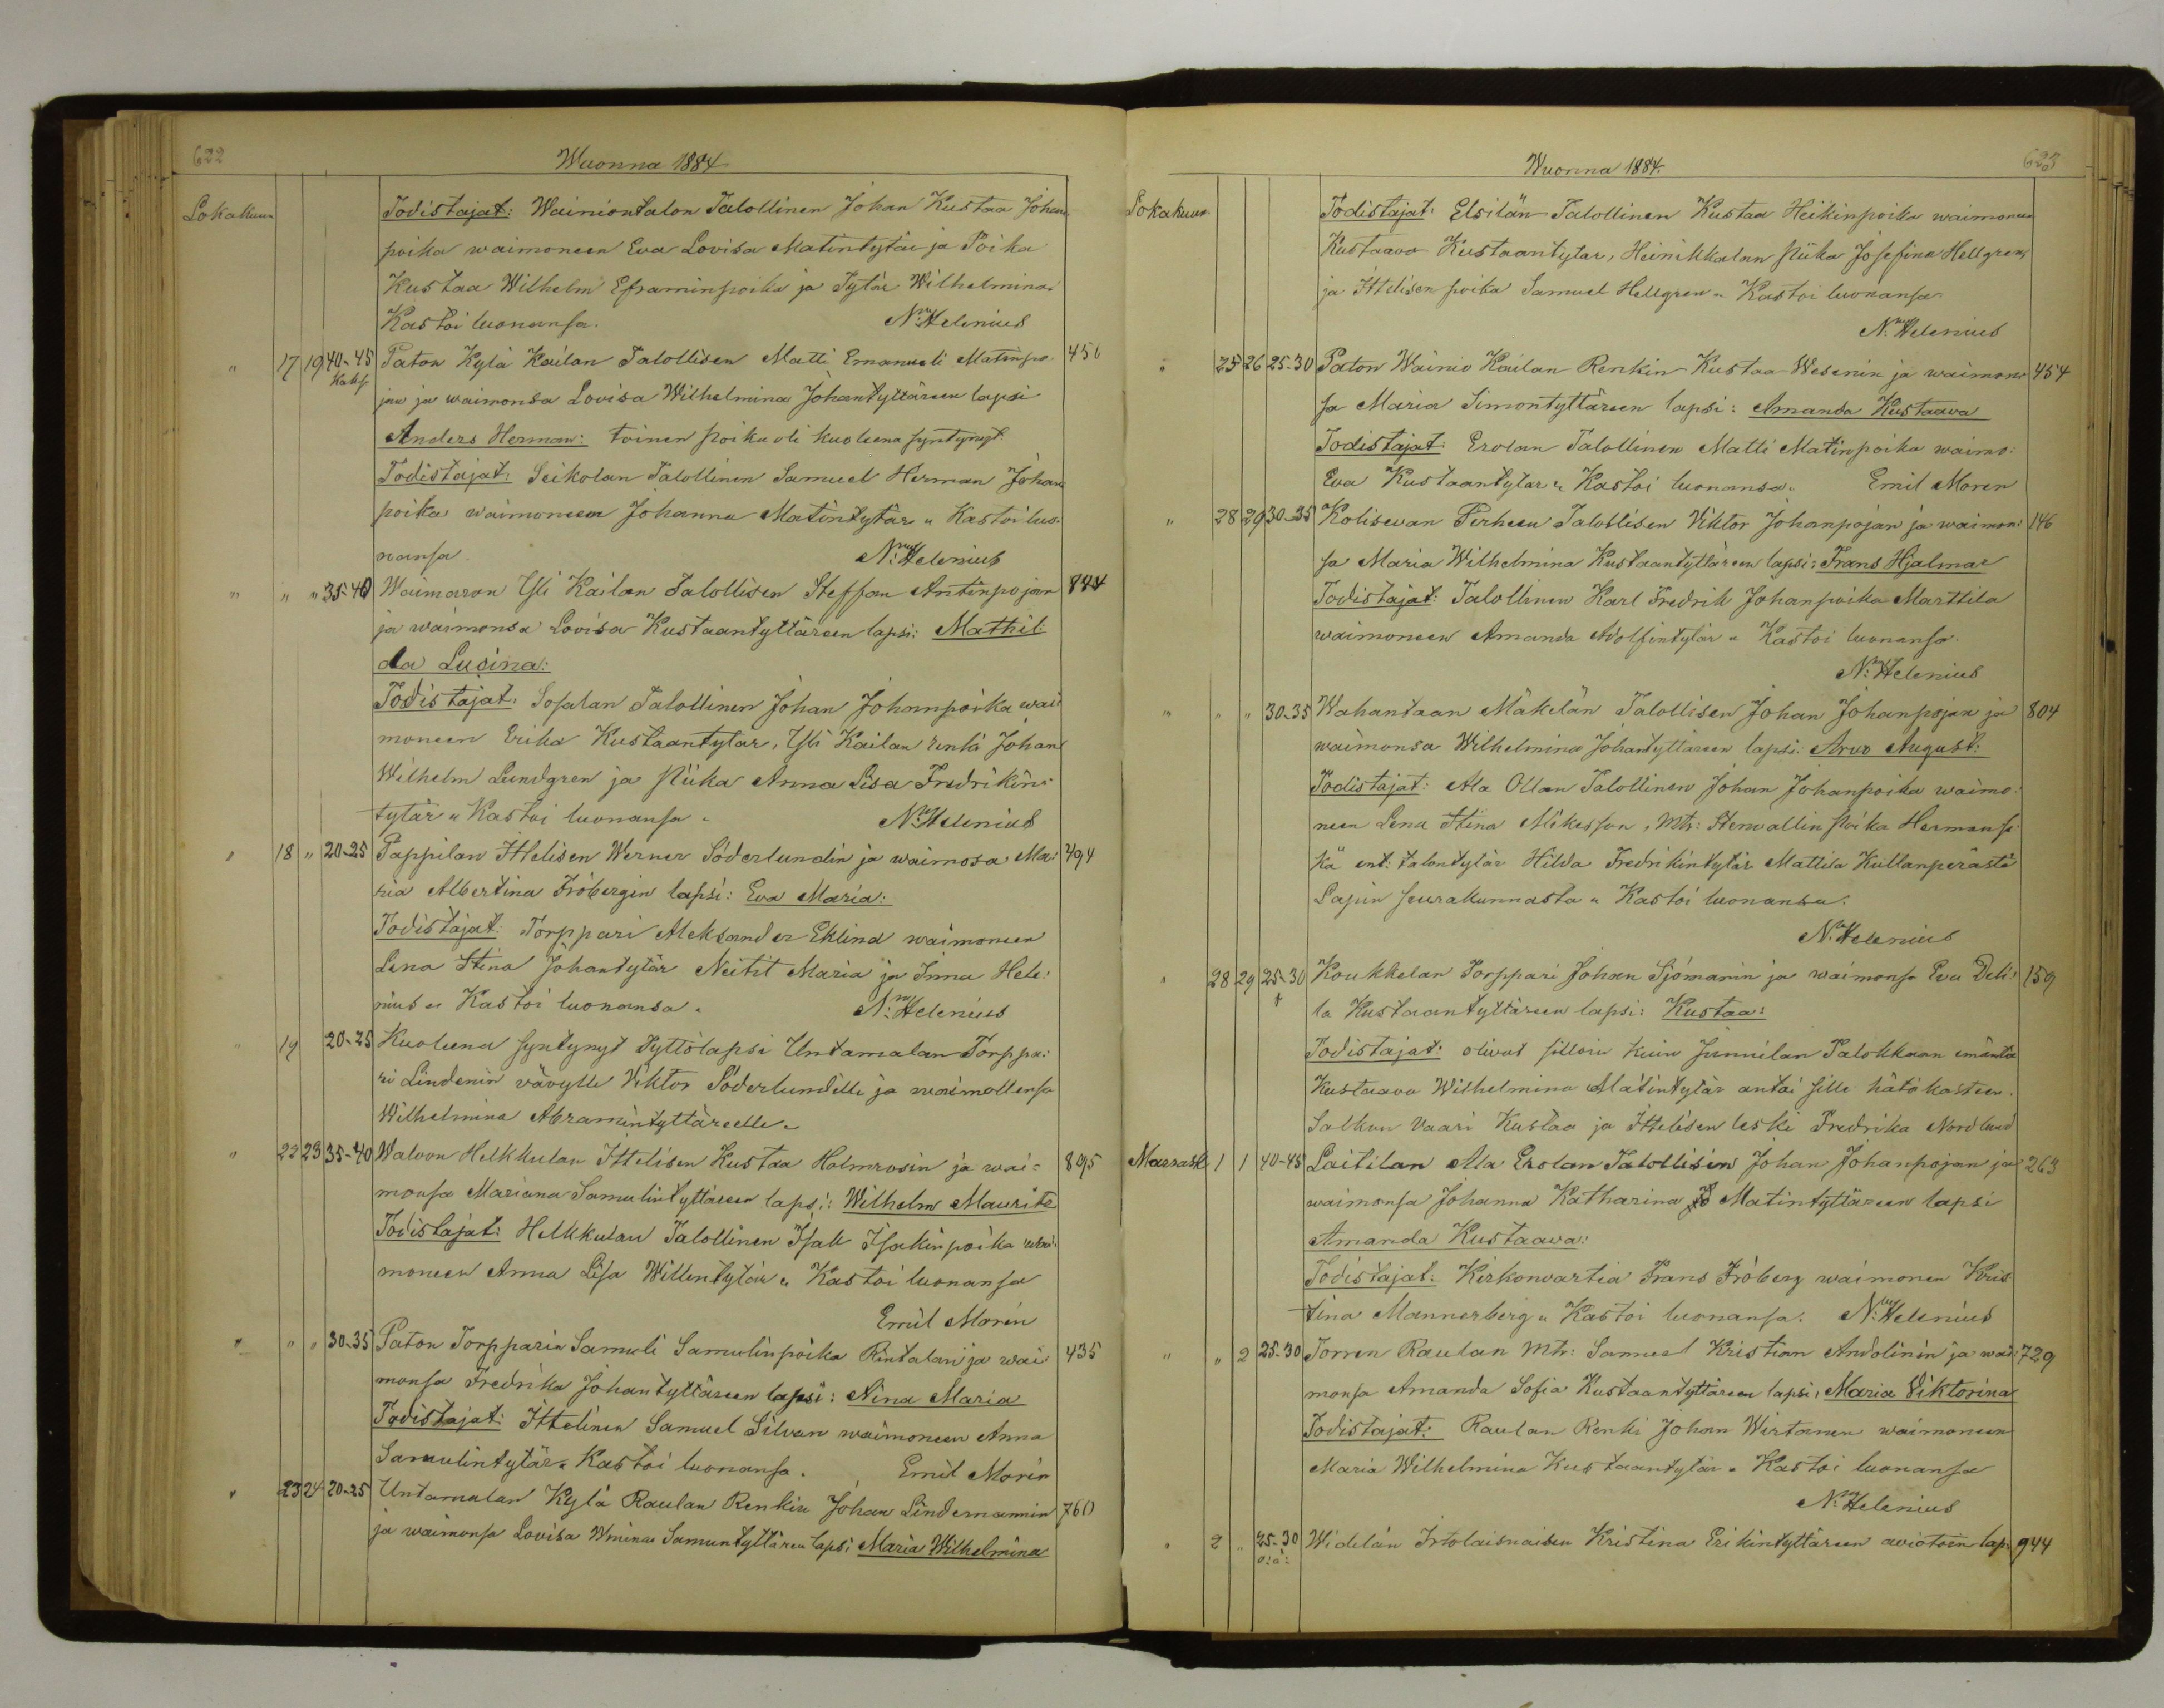 622
Wuonna 1884
Lokakuun
Todistajat: Wainiontalon Talollinen Johan Kustaa Johan
poika waimoneen Eva Lovisa Matintytär ja Poika
Kustaa Wilhelm Eframinpoika ja Tytär Wilhelmina
Kastoi luonansa. N. Helenius
" 17 19 40-45 Paton Kylä Kailan Talollisen Matti Emanueli Matinpo- 456
Kaks jan ja waimonsa Lovisa Wilhelmina Johantyttäreen lapsi
Anders Herman: toinen poika oli kuolleena syntynyt.
Todistajat: Seikolan Talollinen Samuel Herman Johan
poika waimoneen Johanna Matintytär " Kastoi luo-
nansa. N. Helenius
" " " 35-40 Waimaron Yli Kailan Talollisen Steffan Antinpojan 844
ja waimonsa Lovisa Kustaantyttäreen lapsi: Mathil-
da Lusina:
Todistajat: Sosalan Talollinen Johan Johanpoika wai:
moneen Erika Kustaantytär, Yli Kailan renki Johan
Wilhelm Lundgren ja Piika Anna Lisa Fredrikin:
tytär " Kastoi luonansa " N. Helenius
" 18 " 20-25 Pappilan Ittelisen Werner Söderlundin ja waimosa Ma: 494
ria Albertina Fröbergin lapsi: Eva Maria:
Todistajat: Torppari Aleksander Eklind waimoneen
Lena Stina Johantytär Neitit Maria ja Inna Hele:
nius " Kastoi luonansa " N. Helenius
" 19 20-25 Kuoleena syntynyt Tyttölapsi Untamalan Torppa:
ri Lindenin vävylle Viktor Söderlundille ja waimollensa
Wilhelmina Abramintyttäreelle "
" 22 23 35-40 Walvon Helkkulan Ittelisen Kustaa Holmrosin ja wai- 895
monsa Mariana Samulintyttäreen lapsi: Wilhelm Maurits
Todistajat: Helkkulan Talollinen Isak Isakinpoika wai:
moneen Anna Lisa Willentytär " Kastoi luonansa
Emil Morén
" " " 30-35 Paton Torpparin Samuli Samulinpoika Rintalan ja wai: 435
monsa Fredrika Johantyttäreen lapsi: Nina Maria
Todistajat: Ittelinen Samuel Silvan waimoneen Anna
Samulintytär " Kastoi luonansa. Emil Morén
" 23 24 20-25 Untamalan Kylä Raulan Renkin Johan Lindemannin 760
ja waimonsa Lovisa Wmina Samuntyttären lapsi Maria Wilhelmina
623
Wuonna 1884.
Lokakuun
Todistajat: Elsilän Talollinen Kustaa Heikinpoika waimoneen
Kustaava Kustaantytar, Heinikkalan Piika Josefina Hellgren
ja Ittelisen poika Samuel Hellgren " Kastoi luonansa.
N. Helenius
" 25 26 25-30 Paton Wainio Kailan Renkin Kustaa Wesenin ja waimon: 454
sa Maria Simontyttäreen lapsi: Amanda Kustaava
Todistajat: Erolan Talollinen Matti Matinpoika waimo:
Eva Kustaantytar " Kastoi luonansa " Emil Moren
" 28 29 30-35 Kolisevan Perheen Talollisen Viktor Johanpojan ja waimon: 146
sa Maria Wilhelmina Kustaantyttäreen lapsi: Frans Hjalmar
Todistajat: Talollinen Karl Fredrik Johanpoika Marttila
waimoneen Amanda Adolfintytär " Kastoi luonansa.
N. Helenius
" " " 30-35 Wahantaan Mäkelän Talollisen Johan Johanpojan ja 804
waimonsa Wilhelmina Johantyttäreen lapsi: Arvo August:
Todistajat: Ala Ollan Talollinen Johan Johanpoika waimo:
neen Lena Stina Mikesson, Mtr: Stenvallin Poika Herman se:
kä ent: talontytär Hilda Fredrikintytär Mattila Kullanperästä
Lapin seurakunnasta " Kastoi luonansa.
N. Helenius
" 28 29 25-30 Koukkelan Torppari Johan Sjömanin ja waimonsa Eva Deli: 159
† la Kustaantyttäreen lapsi: Kustaa:
Todistajat: olivat silloin kuin Junnilan Talokkaan emäntä
Kustaava Wilhelmina Matintytär antoi sille hätä kasteen.
Salkun Vaari Kustaa ja Ittelisen leski Fredrika Nordlund
Marrask. 1 1 40-45 Laitilan Ala Erolan Talollisen Johan Johanpojan ja 263
waimonsa Johanna Katharina Matintyttäreen lapsi
Amanda Kustaava:
Todistajat: Kirkonvartia Frans Fröberg waimonen Kris-
tina Mannerberg " Kastoi luonansa. N. Helenius
" " 2 25-30 Torren Raulan Mtr: Samuel Kristian Andolinin ja wai: 729
monsa Amanda Sofia Kustaantyttäreen lapsi, Maria Viktorina
Todistajat: Raulan Renki Johan Wirtanen waimoneen
Maria Wilhelmina Kustaantytär " Kastoi luonansa
N. Helenius
" 2 " 25-30 Widilän Irtolaisnaisen Kristina Erikintyttäreen aviotoin lap: 944
o: ä: